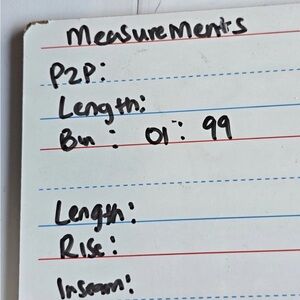 Measurements
P2P:
Length:
Bin : 01: 99
Length:
Rise:
Inseam: